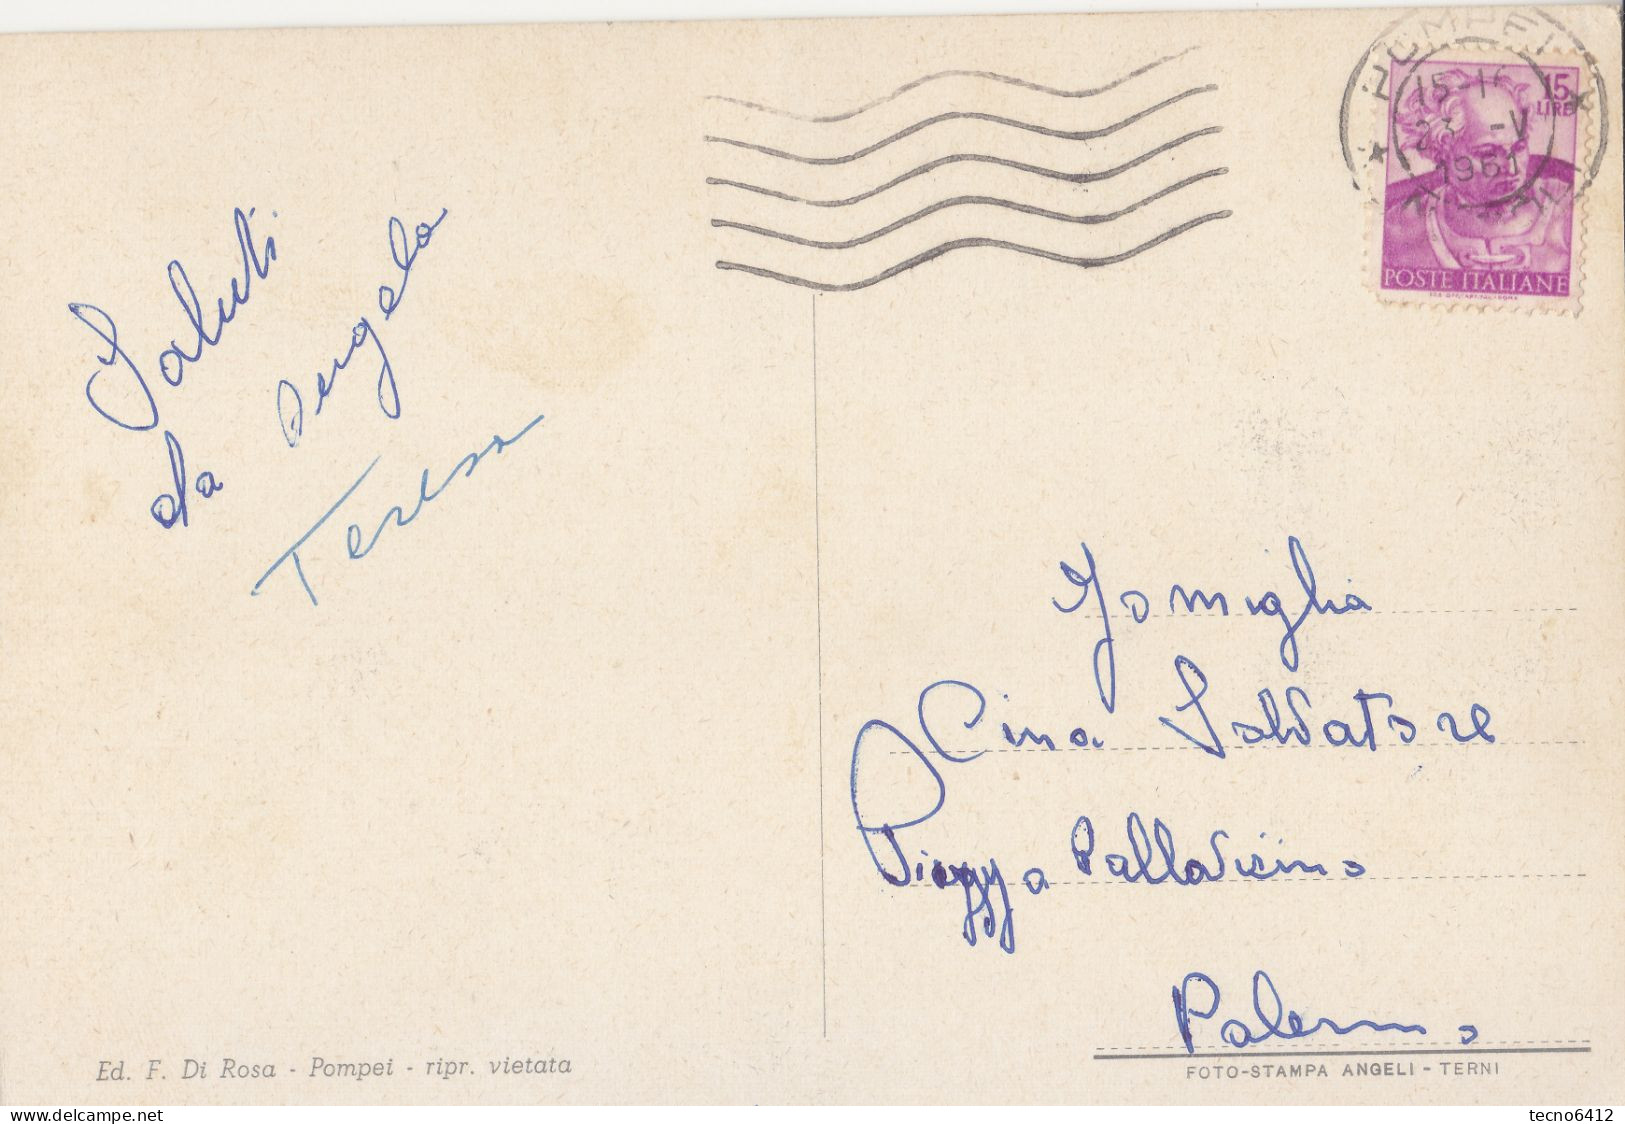 POMPEI
15-16
23 -V
1961
15
LIRE
POSTE ITALIANE
Saluti
da Angela
Teresa
Famiglia
Cina Salvatore
Piazza Pallavicino
Palermo
Ed. F. Di Rosa - Pompei - ripr. vietata
FOTO-STAMPA ANGELI - TERNI
delcampe.net
tecno6412